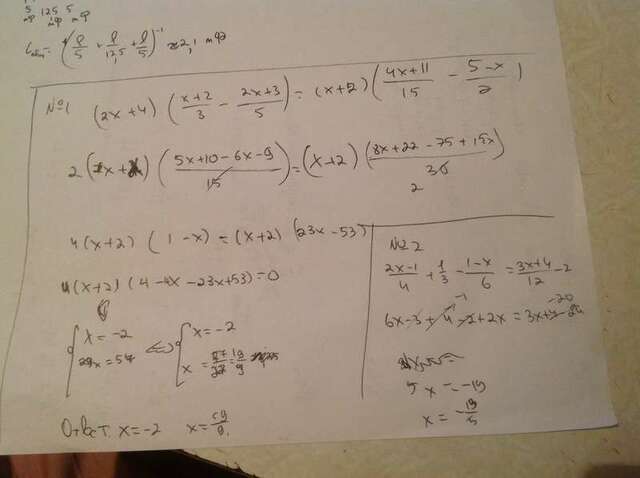 5 12,5 5
мф мф мф
Cобщ = (1/5 + 1/12,5 + 1/5)⁻¹ ≈ 2,1 мФ
№1 (2x+4) ((x+2)/3 - (2x+3)/5) = (x+2) ((4x+11)/15 - (5-x)/2)
2 (x+2) ((5x+10-6x-9)/15) = (x+2) ((8x+22-75+15x)/30)
2
4(x+2) (1-x) = (x+2) (23x-53)
4(x+2) (4-4x-23x+53)=0
x = -2 <=> x = -2
27x = 57 x = 57/27 = 19/9
Ответ: x=-2 x = 19/9.
№2
(2x-1)/4 + 1/3 - (1-x)/6 = (3x+4)/12 - 2
6x-3+4-2+2x = 3x+4-24
-1 -20
5x = -19
x = -19/5